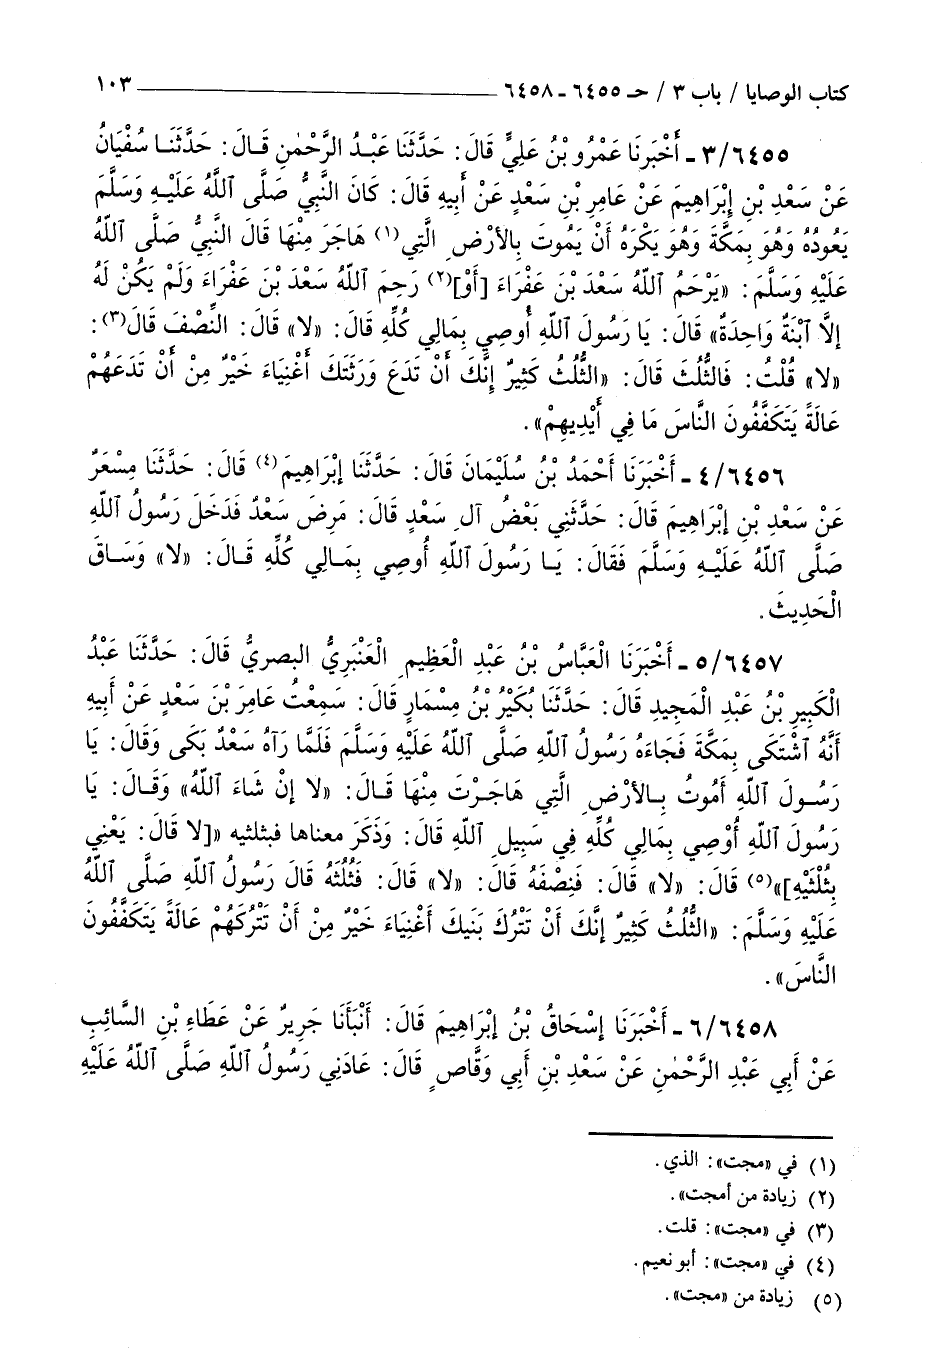 كتاب الوصايا / باب ٣ / حـ ٦٤٥٥ - ٦٤٥٨ ١٠٣
٣/٦٤٥٥ - أَخْبَرَنَا عَمْرُو بْنُ عَلِيٍّ قَالَ: حَدَّثَنَا عَبْدُ الرَّحْمٰنِ قَالَ: حَدَّثَنَا سُفْيَانُ
عَنْ سَعْدِ بْنِ إِبْرَاهِيمَ عَنْ عَامِرِ بْنِ سَعْدٍ عَنْ أَبِيهِ قَالَ: كَانَ النَّبِيُّ صَلَّى ٱللَّهُ عَلَيْهِ وَسَلَّمَ
يَعُودُهُ وَهُوَ بِمَكَّةَ وَهُوَ يَكْرَهُ أَنْ يَمُوتَ بِالأَرْضِ الَّتِي(١) هَاجَرَ مِنْهَا قَالَ النَّبِيُّ صَلَّى ٱللَّهُ
عَلَيْهِ وَسَلَّمَ: «يَرْحَمُ ٱللَّهُ سَعْدَ بْنَ عَفْرَاءَ [أَوْ](٢) رَحِمَ ٱللَّهُ سَعْدَ بْنَ عَفْرَاءَ وَلَمْ يَكُنْ لَهُ
إلَّا ٱبْنَةٌ وَاحِدَةٌ» قَالَ: يَا رَسُولَ ٱللَّهِ أُوصِي بِمَالِي كُلِّهِ قَالَ: «لا» قَالَ: النِّصْفَ قَالَ(٣):
«لا» قُلْتُ: فَالثُّلُثَ قَالَ: «الثُّلُثُ كَثِيرٌ إِنَّكَ أَنْ تَدَعَ وَرَثَتَكَ أَغْنِيَاءَ خَيْرٌ مِنْ أَنْ تَدَعَهُمْ
عَالَةً يَتَكَفَّفُونَ النَّاسَ مَا فِي أَيْدِيهِمْ».
٤/٦٤٥٦ - أَخْبَرَنَا أَحْمَدُ بْنُ سُلَيْمَانَ قَالَ: حَدَّثَنَا إِبْرَاهِيمَ(٤) قَالَ: حَدَّثَنَا مِسْعَرٌ
عَنْ سَعْدِ بْنِ إِبْرَاهِيمَ قَالَ: حَدَّثَنِي بَعْضُ آلِ سَعْدٍ قَالَ: مَرِضَ سَعْدٌ فَدَخَلَ رَسُولُ ٱللَّهِ
صَلَّى ٱللَّهُ عَلَيْهِ وَسَلَّمَ فَقَالَ: يَا رَسُولَ ٱللَّهِ أُوصِي بِمَالِي كُلِّهِ قَالَ: «لا» وَسَاقَ
الْحَدِيثَ.
٥/٦٤٥٧ - أَخْبَرَنَا الْعَبَّاسُ بْنُ عَبْدِ الْعَظِيمِ الْعَنْبَرِيُّ البصريُّ قَالَ: حَدَّثَنَا عَبْدُ
الْكَبِيرِ بْنُ عَبْدِ الْمَجِيدِ قَالَ: حَدَّثَنَا بُكَيْرُ بْنُ مِسْمَارٍ قَالَ: سَمِعْتُ عَامِرَ بْنَ سَعْدٍ عَنْ أَبِيهِ
أَنَّهُ ٱشْتَكَى بِمَكَّةَ فَجَاءَهُ رَسُولُ ٱللَّهِ صَلَّى ٱللَّهُ عَلَيْهِ وَسَلَّمَ فَلَمَّا رَآهُ سَعْدٌ بَكَى وَقَالَ: يَا
رَسُولَ ٱللَّهِ أَمُوتُ بِالأَرْضِ الَّتِي هَاجَرْتَ مِنْهَا قَالَ: «لا إنْ شَاءَ ٱللَّهُ» وَقَالَ: يَا
رَسُولَ ٱللَّهِ أُوْصِي بِمَالِي كُلِّهِ فِي سَبِيلِ ٱللَّهِ قَالَ: وَذَكَرَ معناها فبثلثيه «[لا قَالَ: يَعْنِي
بِثُلُثَيْهِ]»(٥) قَالَ: «لا» قَالَ: فَنِصْفَهُ قَالَ: «لا» قَالَ: فَثُلُثَهُ قَالَ رَسُولُ ٱللَّهِ صَلَّى ٱللَّهُ
عَلَيْهِ وَسَلَّمَ: «الثُّلُثُ كَثِيرٌ إِنَّكَ أَنْ تَتْرُكَ بَنِيكَ أَغْنِيَاءَ خَيْرٌ مِنْ أَنْ تَتْرُكَهُمْ عَالَةً يَتَكَفَّفُونَ
النَّاسَ».
٦/٦٤٥٨ - أَخْبَرَنَا إِسْحَاقُ بْنُ إِبْرَاهِيمَ قَالَ: أَنْبَأَنَا جَرِيرٌ عَنْ عَطَاءِ بْنِ السَّائِبِ
عَنْ أَبِي عَبْدِ الرَّحْمٰنِ عَنْ سَعْدِ بْنِ أَبِي وَقَّاصٍ قَالَ: عَادَنِي رَسُولُ ٱللَّهِ صَلَّى ٱللَّهُ عَلَيْهِ
(١) في «مجت»: الذي.
(٢) زيادة من أمجت».
(٣) في «مجت»: قلت.
(٤) في «مجت»: أبو نعيم.
(٥) زيادة من «مجت».